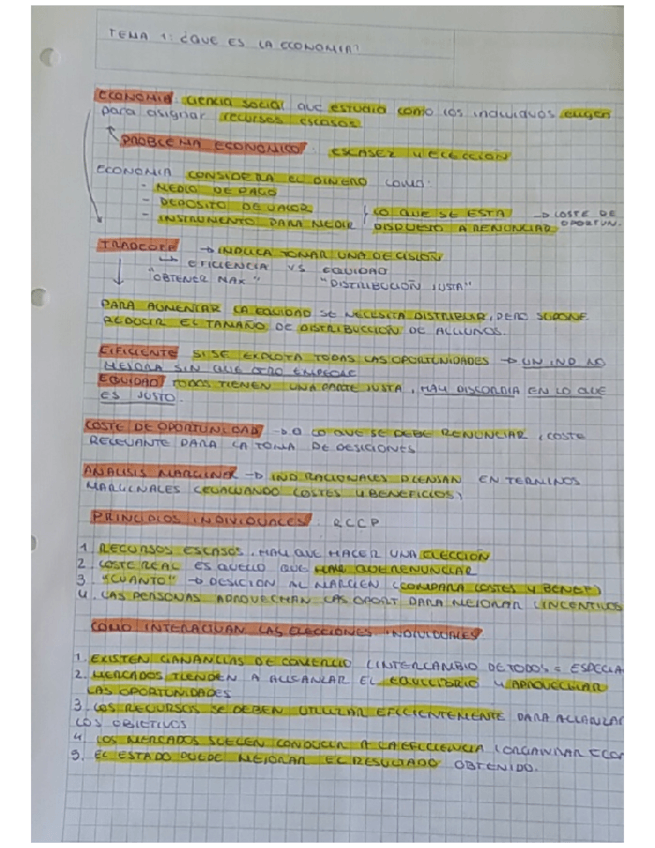 TEMA 1: ¿QUE ES LA ECONOMIA?
ECONOMIA: ciencia social que estudia como los individuos eligen
para asignar recursos escasos
PROBLEMA ECONOMICO: ESCASEZ Y ELECCION
ECONOMIA CONSIDERA EL DINERO COMO:
- MEDIO DE PAGO
- DEPOSITO DE VALOR
- INSTRUMENTO PARA MEDIR
LO QUE SE ESTA DISPUESTO A RENUNCIAR → COSTE DE OPORTUN.
TRADEOFF → INDICA TOMAR UNA DECISIÓN
↳ EFICIENCIA VS EQUIDAD
"OBTENER MAX" "DISTRIBUCIÓN JUSTA"
PARA AUMENTAR LA EQUIDAD SE NECESITA DISTRIBUIR, PERO SUPONE
REDUCIR EL TAMAÑO DE DISTRIBUCCION DE ALGUNOS.
EIFICIENTE SI SE EXPLOTA TODAS LAS OPORTUNIDADES → UN IND NO
MEJORA SIN QUE OTRO EMPEORE
EQUIDAD TODOS TIENEN UNA PARTE JUSTA, HAY DISCORDIA EN LO QUE
ES JUSTO.
COSTE DE OPORTUNIDAD → LO QUE SE DEBE RENUNCIAR, COSTE
RELEVANTE PARA LA TOMA DE DESICIONES
ANALISIS MARGINAL → IND RACIONALES PIENSAN EN TERMINOS
MARGINALES (EVALUANDO COSTES Y BENEFICIOS)
PRINCIPIOS INDIVIDUALES: RCCP
1. RECURSOS ESCASOS, HAY QUE HACER UNA ELECCION
2. COSTE REAL ES AQUELLO QUE HAY QUE RENUNCIAR
3. "CUANTO" → DESICION AL MARGEN (COMPARA COSTES Y BENEF)
4. LAS PERSONAS APROVECHAN LAS OPORT PARA MEJORAR (INCENTIVOS
COMO INTERACTUAN LAS ELECCIONES INDIVIDUALES
1. EXISTEN GANANCIAS DE COMERCIO (INTERCAMBIO DE TODOS = ESPECIA
2. MERCADOS TIENDEN A ALCANZAR EL EQUILIBRIO Y APROVECHAR
LAS OPORTUNIDADES
3. LOS RECURSOS SE DEBEN UTILIZAR EFICIENTEMENTE PARA ALCANZAR
LOS OBJETIVOS
4. LOS MERCADOS SUELEN CONDUCIR A LA EFICIENCIA (ORGANIZAR ECO
5. EL ESTADO PUEDE MEJORAR EL RESULTADO OBTENIDO.